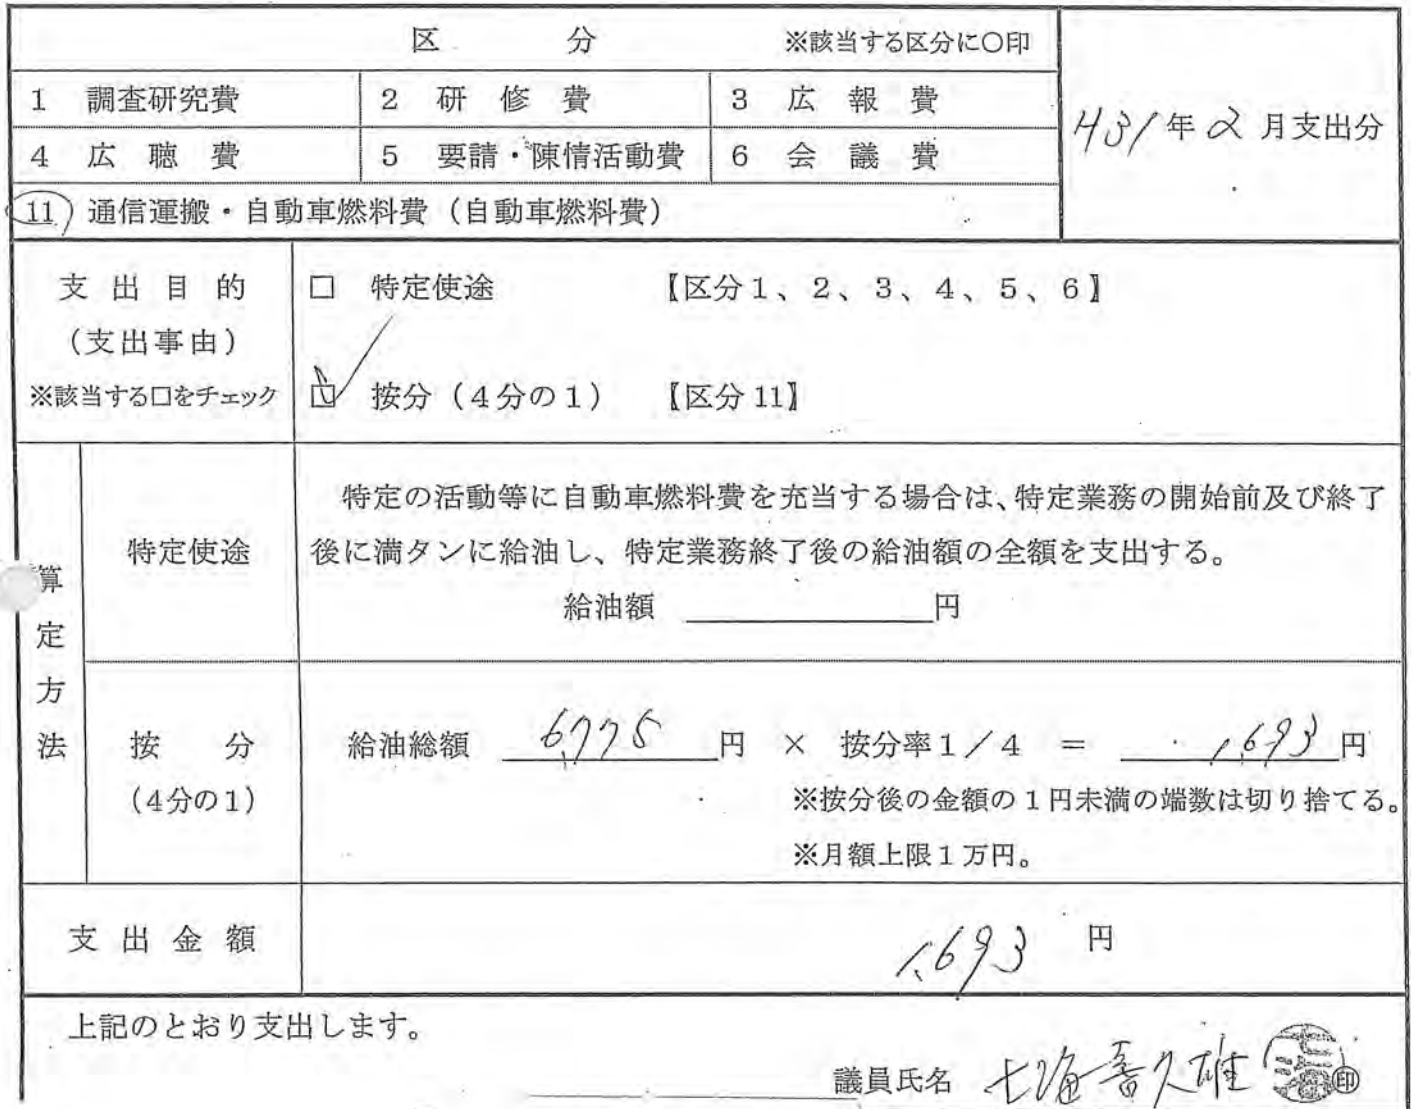 区 分 ※該当する区分に〇印
1 調査研究費 2 研修費 3 広報費
H31年2月支出分
4 広聴費 5 要請・陳情活動費 6 会議費
11 通信運搬・自動車燃料費（自動車燃料費）
支出目的
（支出事由）
※該当する口をチェック
□ 特定使途 【区分1、2、3、4、5、6】
☑ 按分（4分の1） 【区分11】
算定方法
特定使途
特定の活動等に自動車燃料費を充当する場合は、特定業務の開始前及び終了
後に満タンに給油し、特定業務終了後の給油額の全額を支出する。
給油額 円
按分
（4分の1）
給油総額 6,775円 × 按分率1／4 = 1,693円
※按分後の金額の1円未満の端数は切り捨てる。
※月額上限1万円。
支出金額 1,693 円
上記のとおり支出します。
議員氏名 七海喜久雄 七海 ㊞